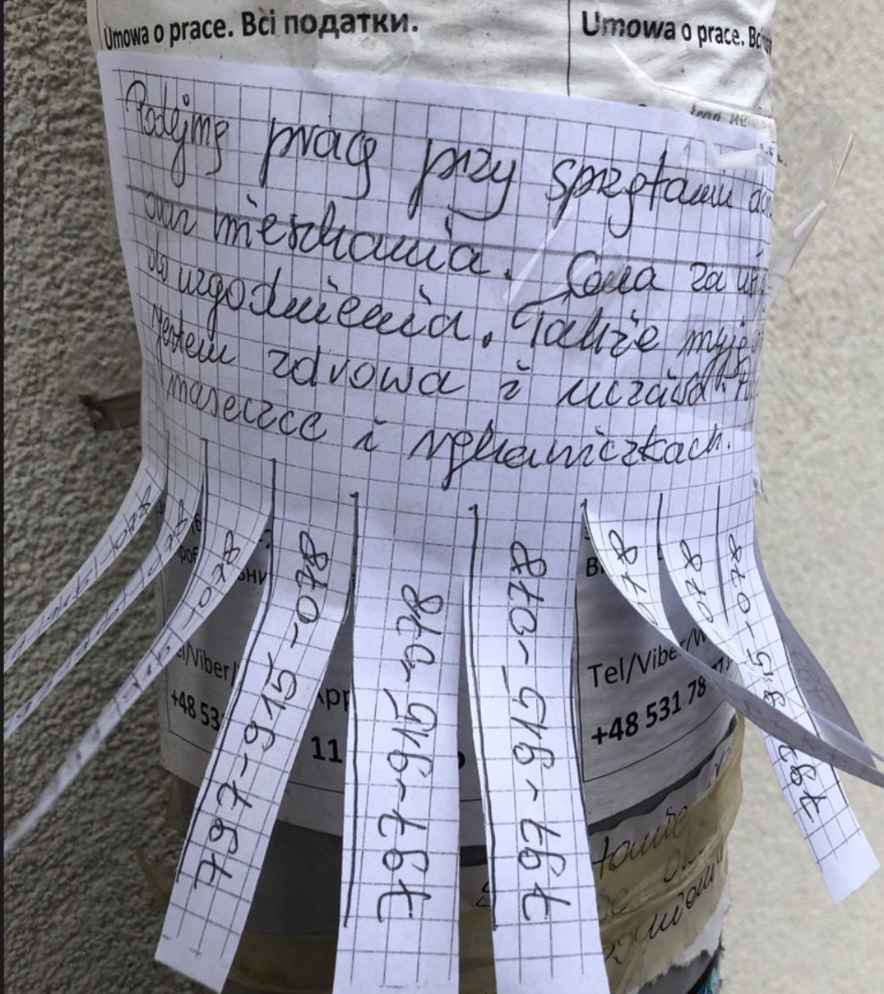 Umowa o prace. Всі податки.
Umowa o prace.
Podejmę pracę przy sprzątaniu
oraz mieszkania. Cena za
do uzgodnienia. Także myję
Jestem zdrowa i uczciwa.
maseczce i rękawiczkach.
797-915-078
797-915-078
797-915-078
078
078
797-915-078
Tel/Viber/
+48 531 78
/Viber/
+48 53
11